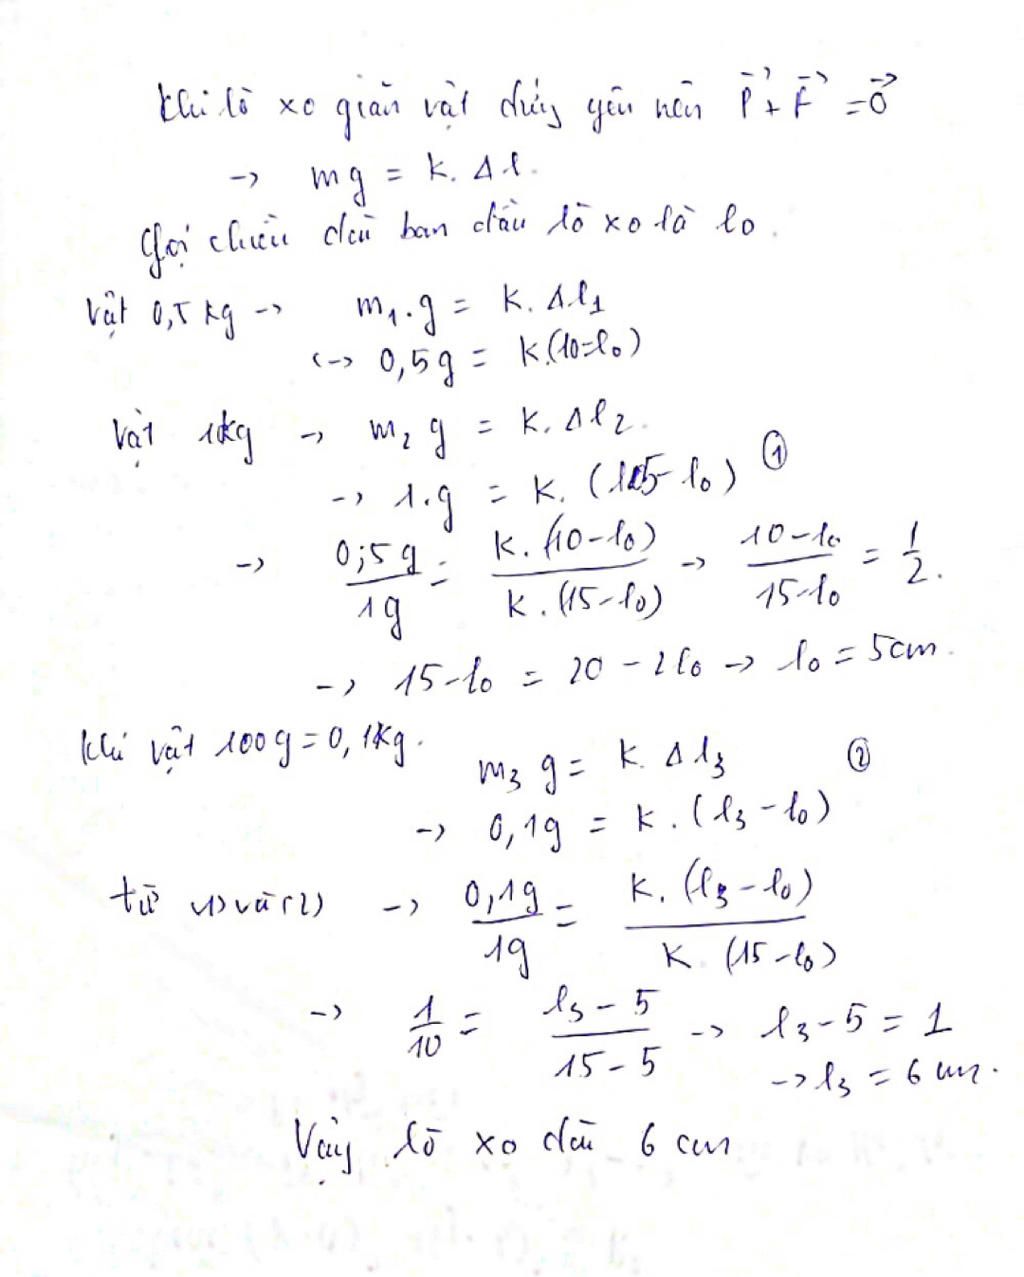 Khi lò xo giãn vật đứng yên nên P⃗ + F⃗ = 0⃗
→ mg = k. Δl.
Gọi chiều dài ban đầu lò xo là l₀.
Vật 0,5 kg → m₁.g = k. Δl₁
↔ 0,5g = k.(10-l₀)
Vật 1kg → m₂ g = k. Δl₂.
→ 1.g = k. (15-l₀) ①
→ 0,5g/1g = k.(10-l₀)/k.(15-l₀) → 10-l₀/15-l₀ = 1/2.
→ 15-l₀ = 20 - 2l₀ → l₀ = 5cm.
Khi vật 100g = 0,1kg. m₃ g = k. Δl₃ ②
→ 0,1g = k. (l₃ - l₀)
từ (1) và (2) → 0,1g/1g = k. (l₃ - l₀)/k. (15-l₀)
→ 1/10 = l₃ - 5/15 - 5 → l₃ - 5 = 1
→ l₃ = 6 cm.
Vậy lò xo dài 6 cm